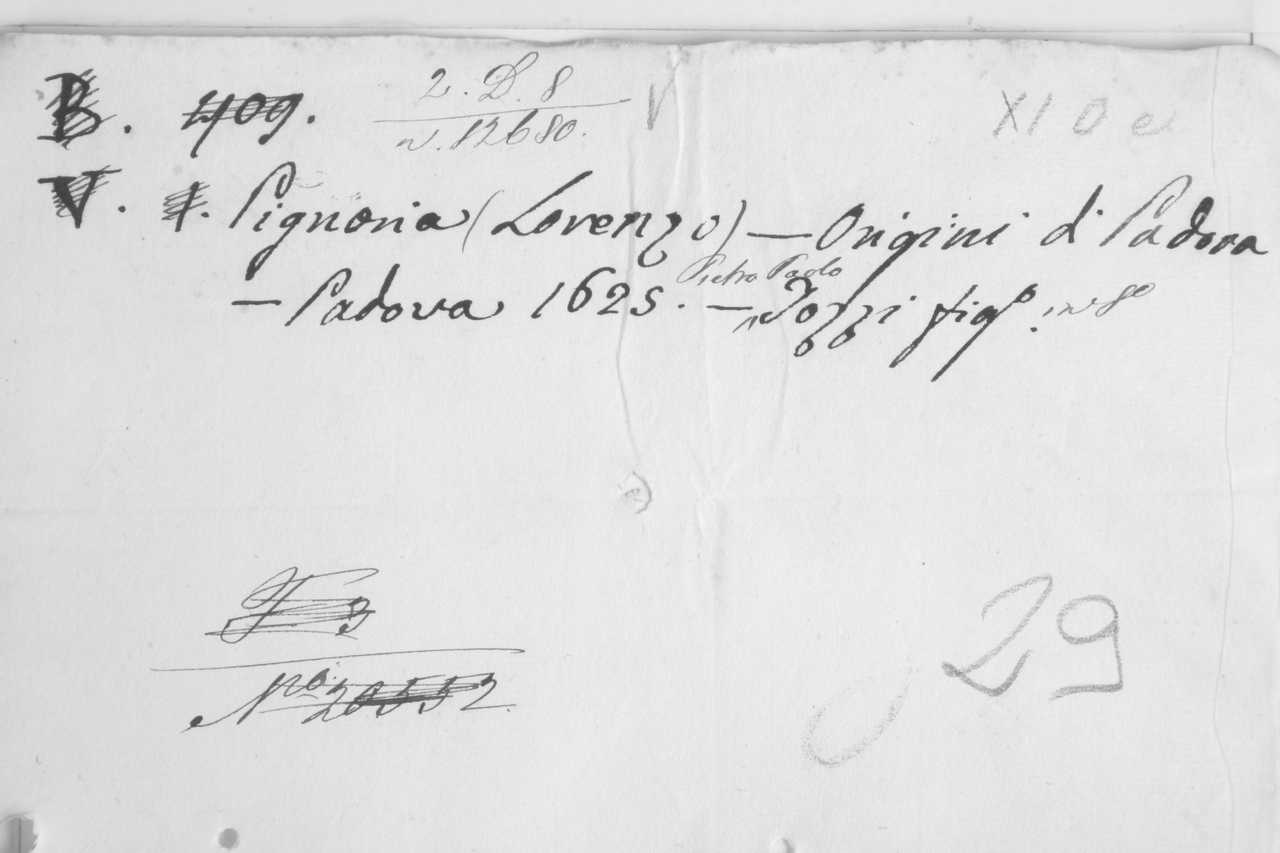 B. 409. 2. D. 8 V XI O e
n. 12680.
V. 1. Pignoria (Lorenzo) — Origini di Padova
— Padova 1625. — Pietro Paolo Tozzi figº. in 8º
F 3
Nº. 20552.
29